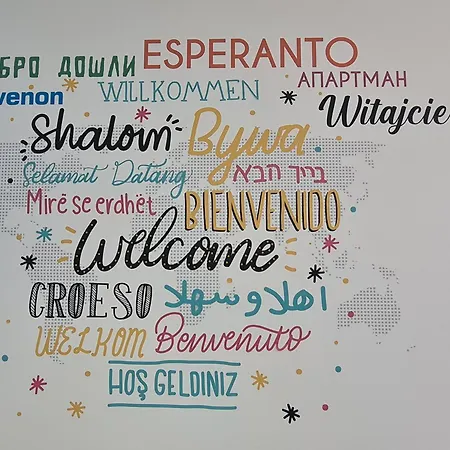 ESPERANTO
БРО ДОШЛИ
АПАРТМАН
venon WILLKOMMEN
Witajcie
Shalom Bywa
Selamat Datang ברוך הבא
Mirë se erdhët BIENVENIDO
Welcome
CROESO اهلا وسهلا
WELKOM Benvenuto
HOŞ GELDINIZ